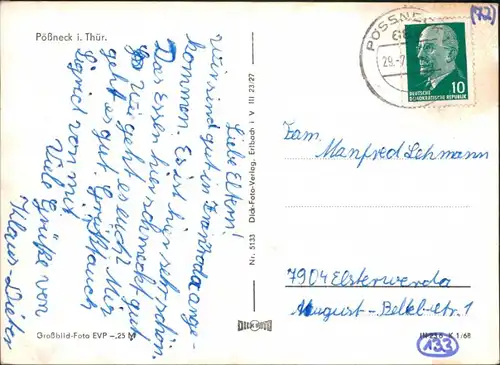 Pößneck i. Thür.
Liebe Eltern!
Wir sind gut in angekommen. Es ist hier sehr schön.
Das Essen hier schmeckt gut.
Wie geht es euch? Mir
geht es gut. Grüßt auch
Sigrid von mir
Viele Grüße von
Klaus-Dieter
Großbild-Foto EVP -,25 M
Nr. 5133 Dick-Foto-Verlag, Erlbach i. V III 23/27
DICK FOTO
PÖSSNE
29.-7
(72)
10
DEUTSCHE
DEMOKRATISCHE REPUBLIK
Fam.
Manfred Lehmann
7904 Elsterwerda
August-Bebel-str. 1
K 1/68
133